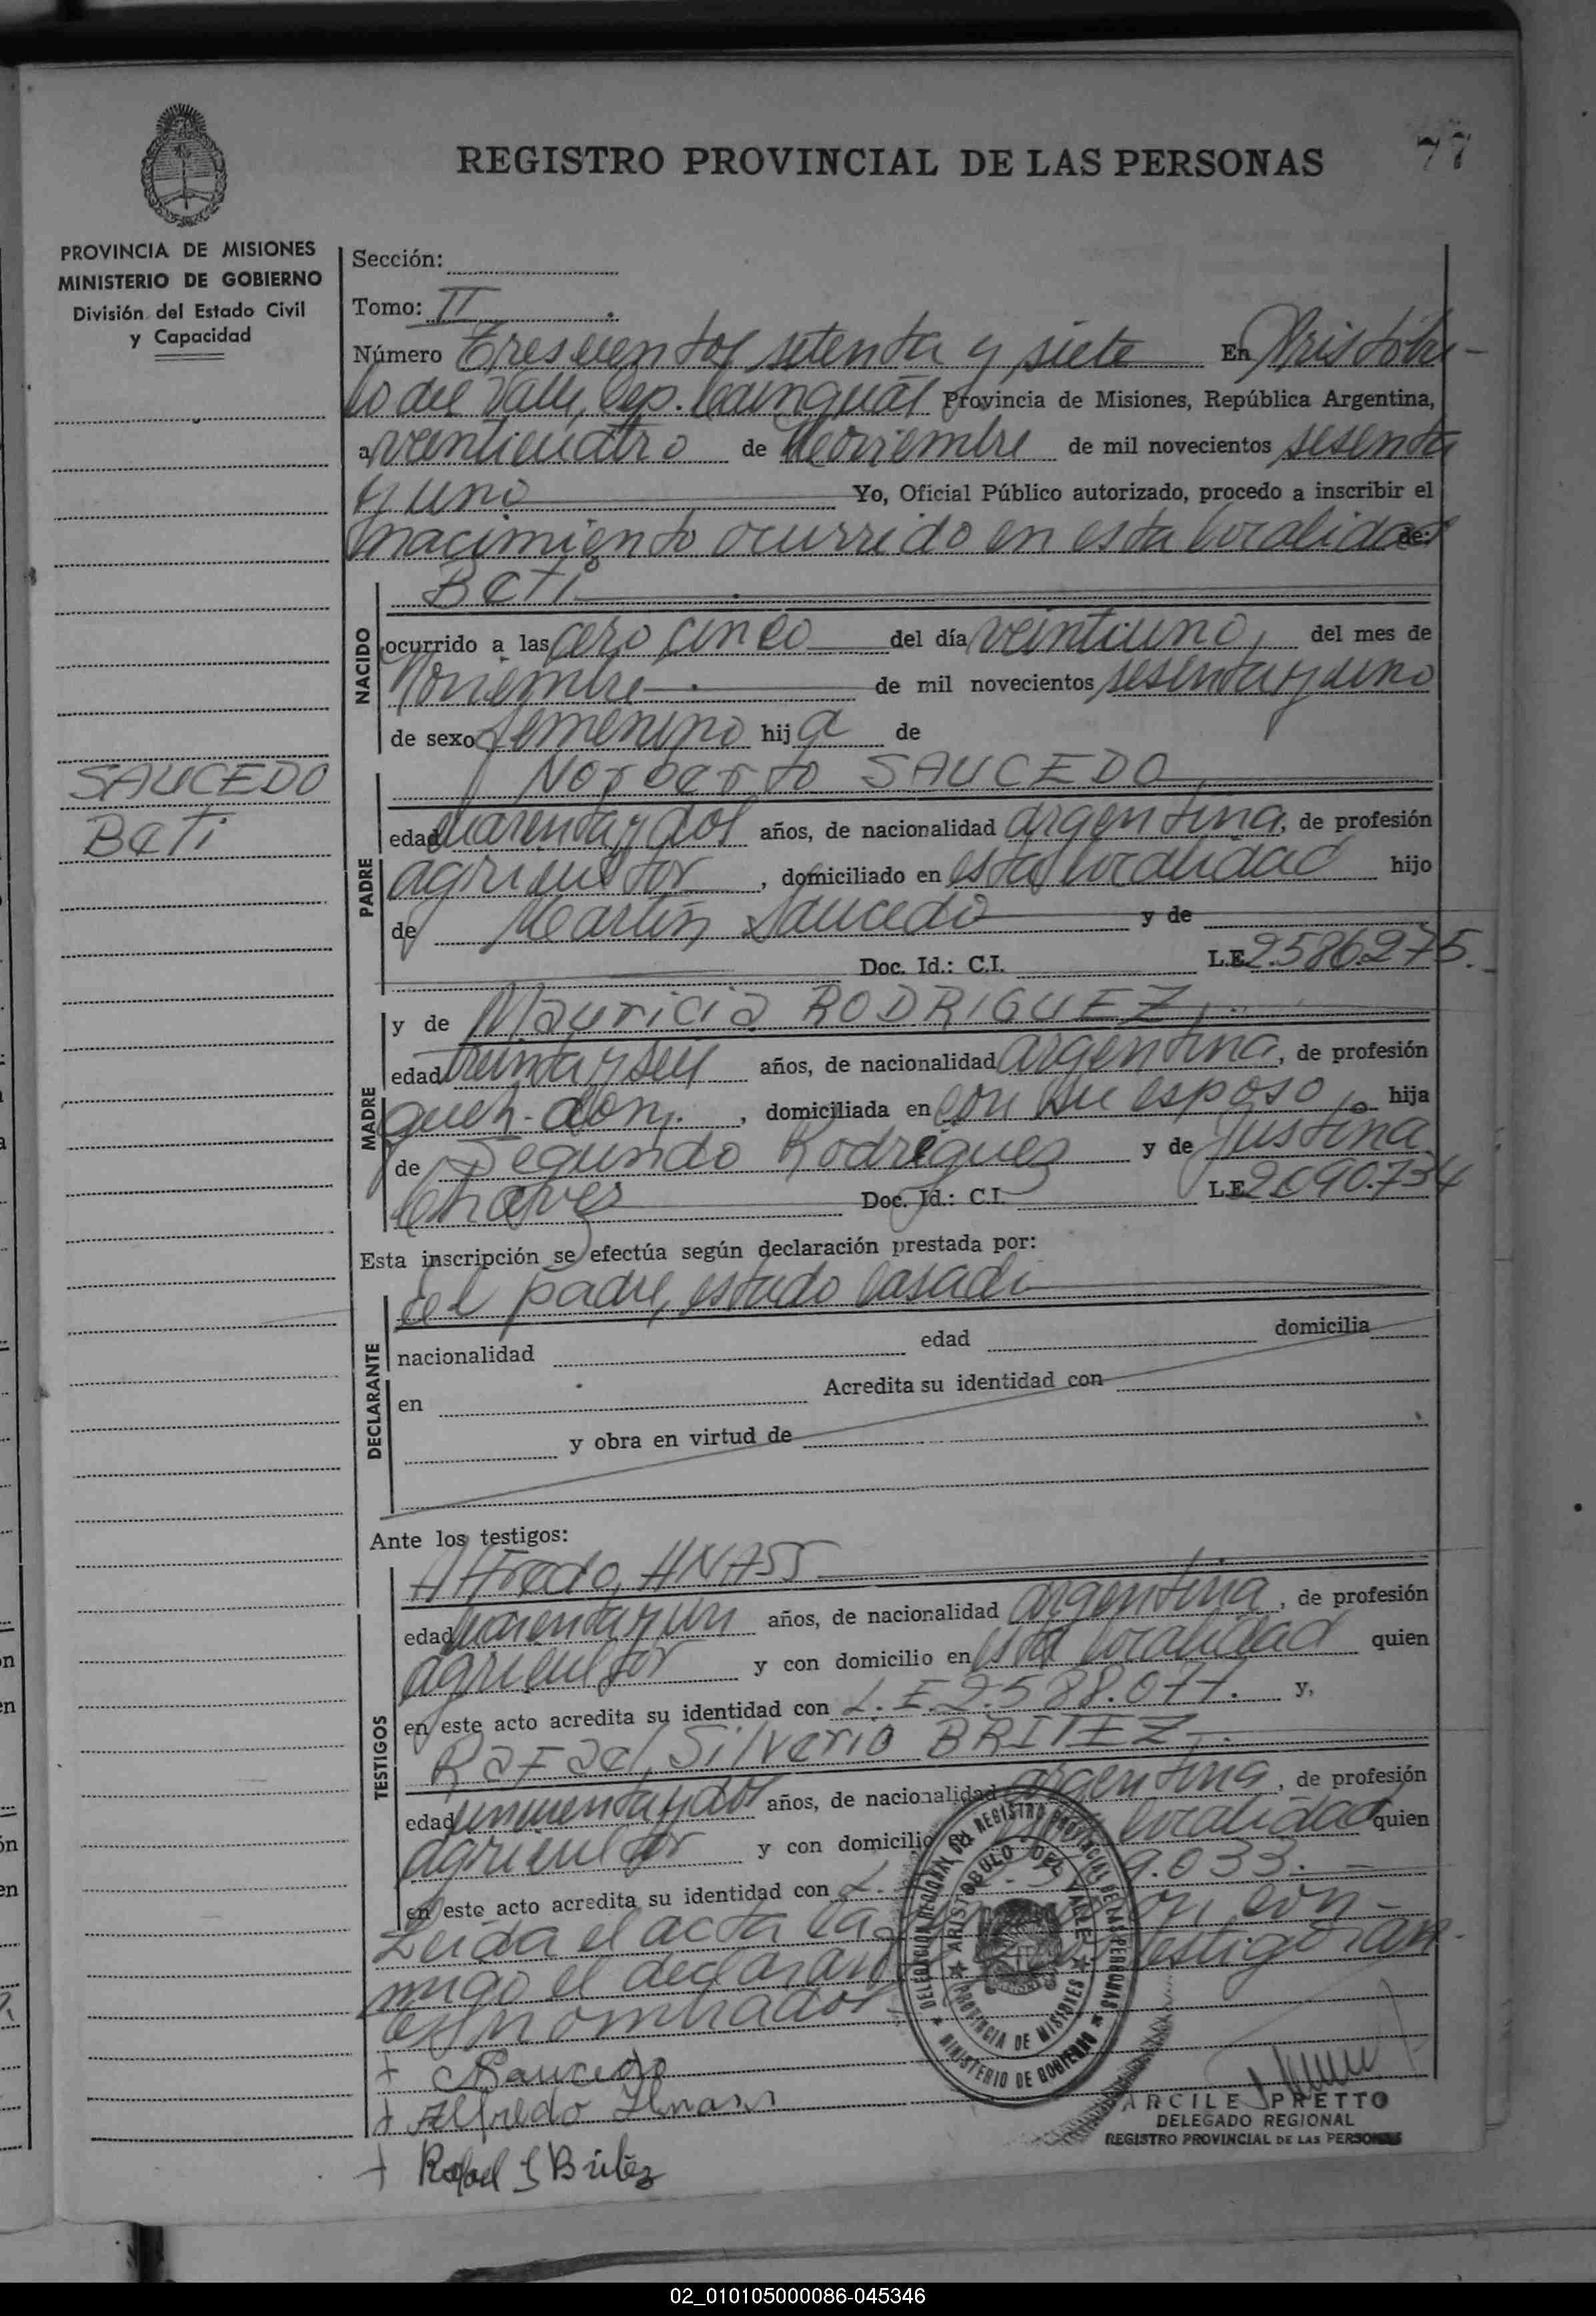 77
REGISTRO PROVINCIAL DE LAS PERSONAS
PROVINCIA DE MISIONES
MINISTERIO DE GOBIERNO
División del Estado Civil
y Capacidad
SAUCEDO
Beti
Sección:
Tomo: II
Número Trescientos setenta y siete En Aristóbu-
lo del Valle, Dep. Cainguás Provincia de Misiones, República Argentina,
a veinticuatro de Noviembre de mil novecientos sesenta
y uno Yo, Oficial Público autorizado, procedo a inscribir el
nacimiento ocurrido en esta localidad de:
NACIDO
Beti
ocurrido a las cero cinco del día veintiuno, del mes de
Noviembre de mil novecientos sesenta y uno
de sexo femenino hija de
PADRE
Norberto SAUCEDO
edad cuarenta y dos años, de nacionalidad argentina, de profesión
agricultor, domiciliado en esta localidad hijo
de Martín Saucedo y de
Doc. Id.: C.I. L.E 2.586.275.
MADRE
y de Mauricia RODRIGUEZ,
edad treinta y seis años, de nacionalidad argentina, de profesión
queh. dom., domiciliada en con su esposo, hija
de Segundo Rodriguez y de Justina
Chavez Doc. Id.: C.I. L.E 2.090.734
Esta inscripción se efectúa según declaración prestada por:
DECLARANTE
el padre, estado casado
nacionalidad edad domicilia
en Acredita su identidad con
y obra en virtud de
Ante los testigos:
TESTIGOS
Alfredo HNASS
edad cuarenta y un años, de nacionalidad argentina, de profesión
agricultor y con domicilio en esta localidad quien
en este acto acredita su identidad con L.E. 2.588.077. y,
Rafael Silverio BRITEZ,
edad cincuenta y dos años, de nacionalidad argentina, de profesión
agricultor y con domicilio localidad quien
en este acto acredita su identidad con L. 9.033.
Leida el acta la con-
migo el declarante testigos an-
tes nombrados
+ Saucedo
+ Alfredo Hnass
+ Rafael S Britez
DELEGACION REGIONAL DEL REGISTRO PROVINCIAL DE LAS PERSONAS
MINISTERIO DE GOBIERNO
ARISTOBULO DEL VALLE
PROVINCIA DE MISIONES
ARCILE J. PRETTO
DELEGADO REGIONAL
REGISTRO PROVINCIAL DE LAS PERSONAS
02_010105000086-045346